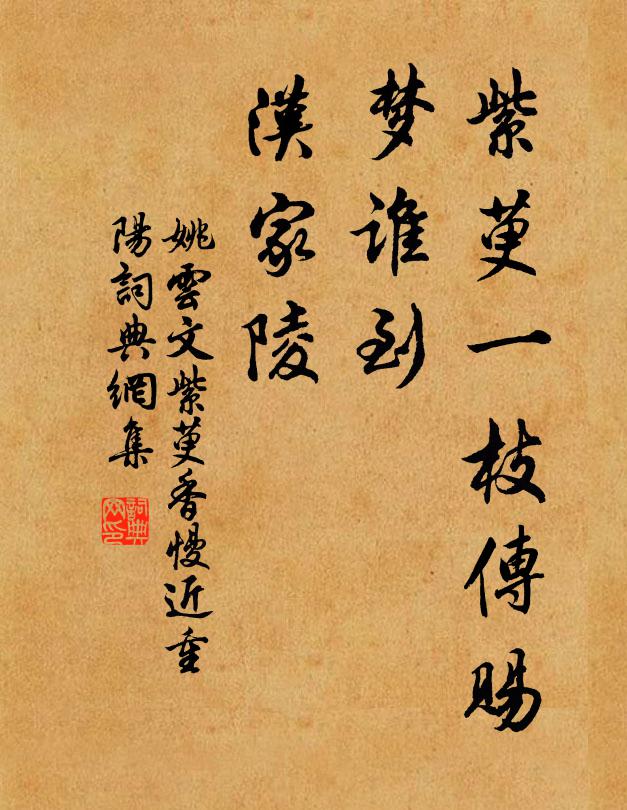 紫萸一枝傳賜
梦誰到
漢家陵
姚雲文紫萸香慢近重
陽詞典網集
詞典
网印